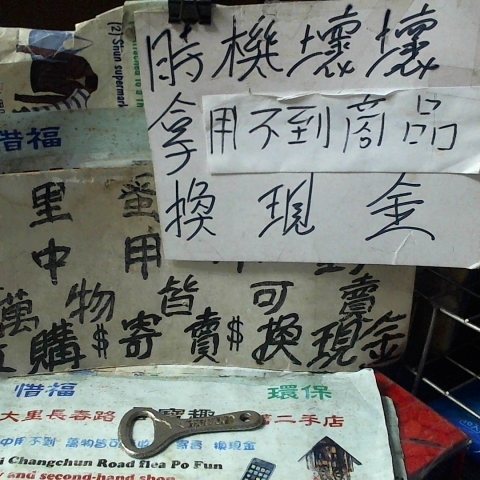 (2) Sinun supermark
時機壞壞
拿用不到商品
換現金
惜福
里
中用
萬物皆可賣
購$寄賣$換現金
惜福 環保
大里長春路 寶趣 二手店
中用不到 萬物皆可 寄售 換現金
i Changchun Road flea Po Fun
y and second-hand shop